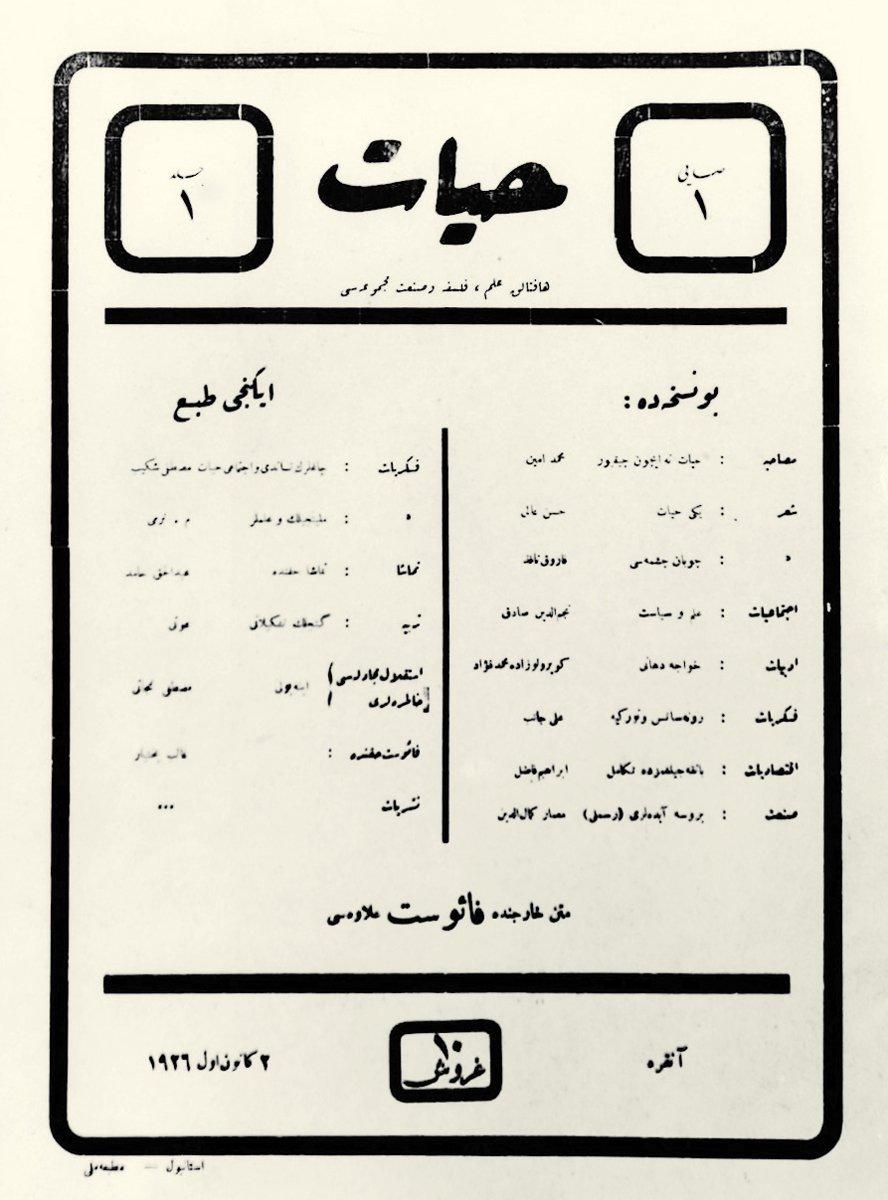 صایی
١
حیات
جلد
١
هافتالق علم ، فلسفه و صنعت مجموعه‌سی
بو نسخه‌ده :
مصاحبه : حیات نه ایچون چیقیور محمد امین
شعر : یکی حیات حسن عالی
» : چوبان چشمه‌سی فاروق نافذ
اجتماعیات : علم و سیاست نجم‌الدین صادق
ادبیات : خواجه دهانی کوپرولوزاده محمد فؤاد
فکریات : رونه‌سانس و تورکیه علی جانب
اقتصادیات : تکامل ابراهیم فاضل
صنعت : بروسه آبده‌لری (رسملی) معمار کمال‌الدین
ایکنجی طبع
فکریات : تساندی و اجتماعی حیات مصطفی شکیب
» : ملیتجیلک و
تماشا : تماشا حقنده عبدالحق حامد
تربیه : کنجلک تشکیلاتی عونی
استقلال محاربه‌سی
خاطره‌لری مصطفی نجاتی
فائوست حقنده :
نشریات ...
متن خارجنده فائوست علاوه‌سی
آنقره
١٠
غروش
٢ کانون اول ١٩٢٦
استانبول — مطبعه ملی